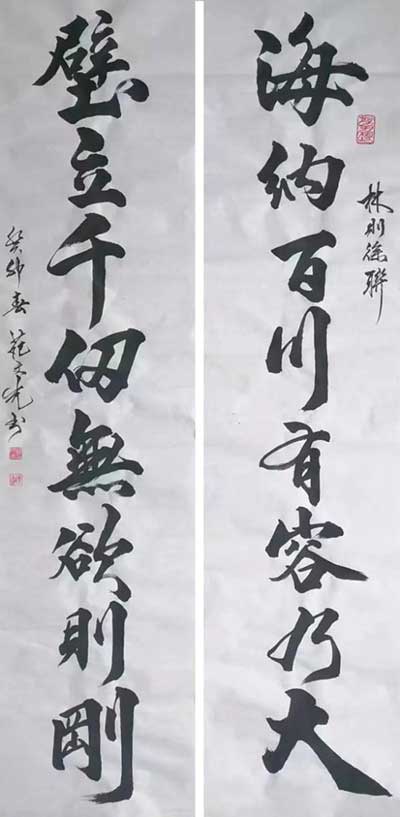 海納百川有容乃大
林則徐聯
壁立千仞無欲則剛
癸卯春范文光书